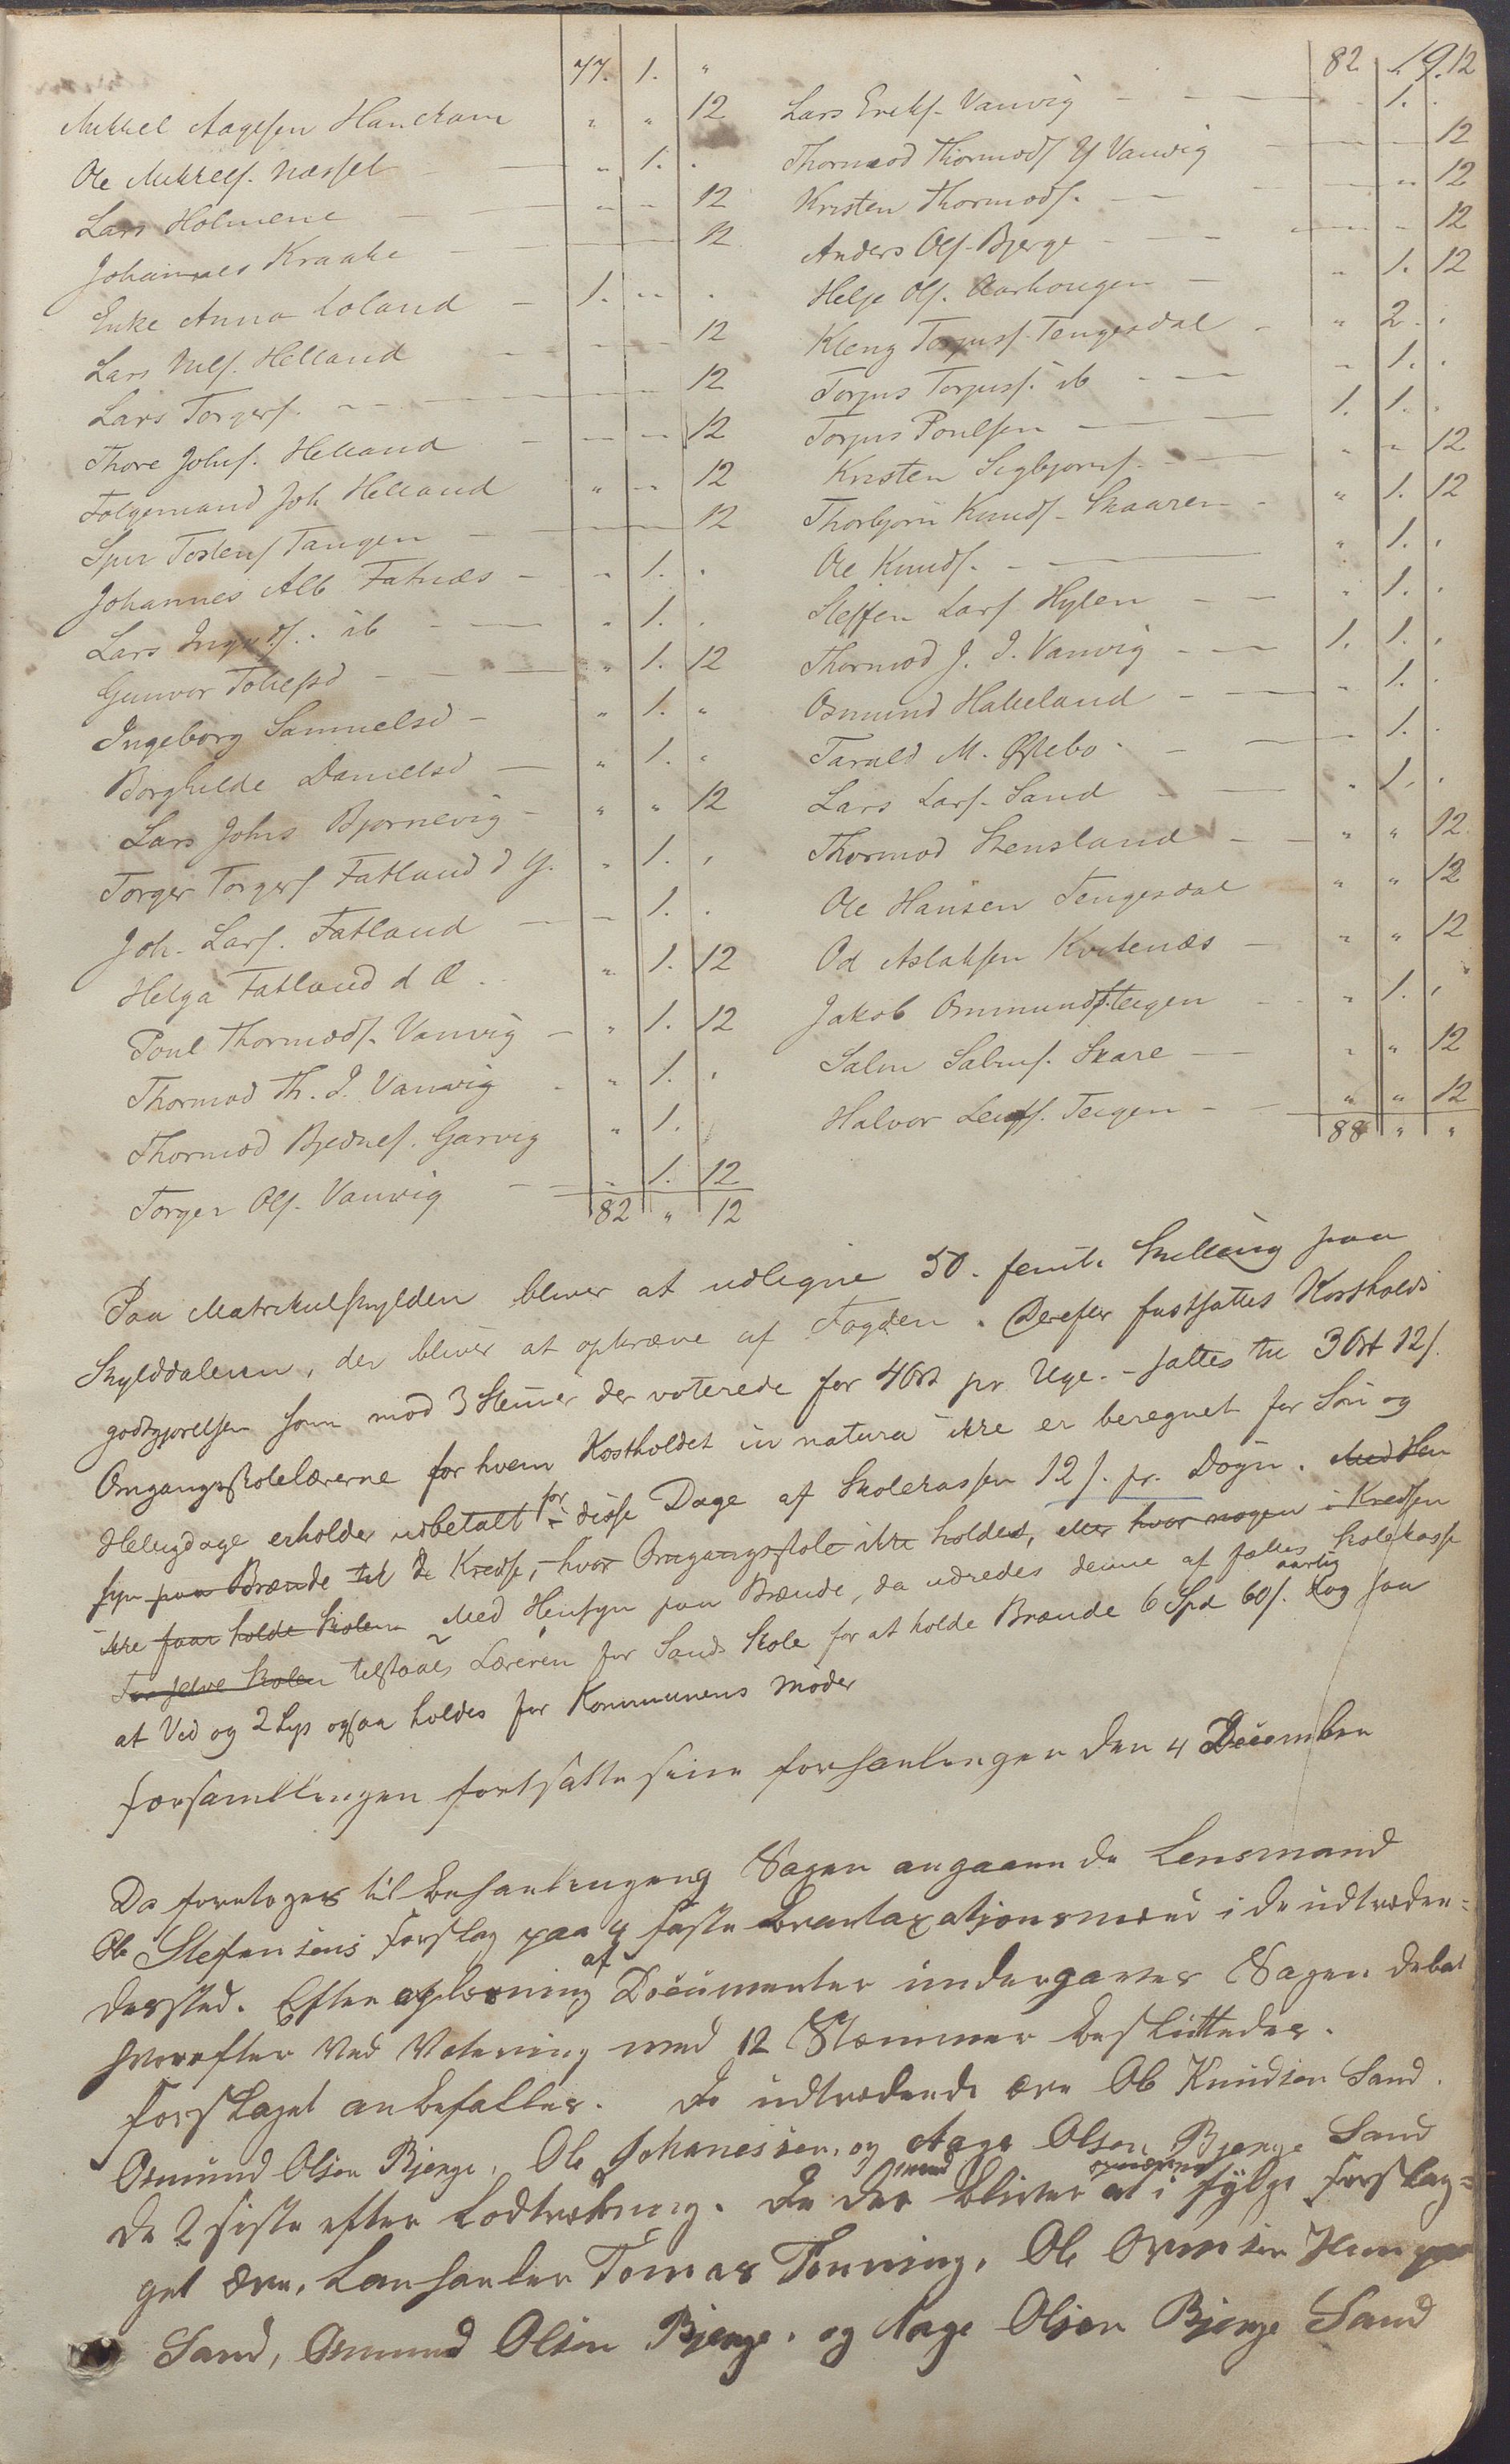 77. 1. "
Mikkel Aagesen Handeland " " 12
Ole Mikkels. Næsset " 1. "
Lars Holmene " " 12
Johannes Kraake " " 12
Enke Anna Loland 1. " "
Lars Nils. Helland " " 12
Lars Torgers. " " 12
Thore Johs. Helland " " 12
Følgemand Joh Helland " " 12
Iver Tostens Tangen " " 12
Johannes Alb. Fatnæs " 1. "
Lars ib " 1. "
Gunvor Tollefsd " 1. 12
Ingeborg Samuelsd " 1. "
Borghilde Danielsd " 1. "
Lars Johs Bjørnevig " " 12
Torger Torgers Fatland d Y. " 1. "
Joh. Lars. Fatland " 1. "
Helga Fatland d Æ. " 1. 12
Poul Thormods. Vanvig " 1. 12
Thormod Th. I. Vanvig " 1. "
Thormod Bjednes. Garvig " 1. "
Torger Ols. Vanvig " 1. 12
82 " 12
19.
82 " 12
Lars Eriks. Vanvig " 1. "
Thormod Thormods Y Vanvig " " 12
Kristen Thormods. " " 12
Anders Ols. Bjerge " " 12
Helje Ols. Aarhougen " 1. 12
Kleng Torpuss. Tengesdal " 2. "
Torpus Torpuss. ib " 1. "
Torpus Poulsen 1. 1. "
Kristen Sigbjørns. " " 12
Thorbjørn Knuds. Skaaren " 1. 12
Ole Knuds. " 1. "
Steffen Lars. Hylen " 1. "
Thormod J. I. Vanvig 1. 1. "
Osmund Hakeland " 1. "
Tarald M. Østebø " 1. "
Lars Lars. Sand " 1. "
Thormod Stensland " " 12
Ole Hansen Tengesdal " " 12
Od Aslaksen Kvitenæs " " 12
Jakob Ommunds. Teigen " 1. "
Salm Salms. Skare " " 12
Halvor Leifs. Teigen " " 12
88 " "
Paa Matrikulskylden bliver at udligne 50. femti Skilling paa
Skylddaleren, der bliver at opkræve af Fogden. Derefter fastsattes Kostholds
godtgjørelsen som mod 3 Stemer der voterede for 4 Ort pr Uge. - sattes til 3 Ort 12 s.
Omgangsskolelærerne for hvem Kostholdet in natura ikke er beregnet for Søn og
Helligdage erholder udbetalt for disse Dage af Skolekassen 12 s. pr. Døgn. Med Hen
syn paa Brænde til de Kredse, hvor Omgangsskole ikke holdes, eller hvor nogen i Kredsen
ikke faar holde Skolen Med Hensyn paa Brænde, da udredes denne af fælles Skolekasse
For selve Skolen tilstaaes Læreren for Sands Skole for at holde Brænde 6 Spd 60 s. aarlig dog saa
at Ved og 2 Lys ogsaa holdes for Kommunens Møder
Forsamlingen fortsatte sine forhandlinger den 4 December
Da foretoges til behandlingeng Sagen angaaende Lensmand
Ole Stefensens Forslag paa 4 faste Brantaxationsmænd i de udtræden-
des sted. Efter oplæsning af Documenter undergaves Sagen debat
hvorefter ved Votering med 12 Stemmer besluttedes.
Forslaget anbefalles. De udtrædende ere Ole Knudsen Sand.
Osmund Olsen Bjerge, Ole Johanessen, og Aage Olsen Bjerge Sand
de 2 siste efter Lodtrækning. De der bliver at i følge Forslag-
get ere, Lanhandler Tomas Tenning, Ole Ormsen
Sand, Osmund Olsen Bjerge, og Aage Olsen Bjerge Sand